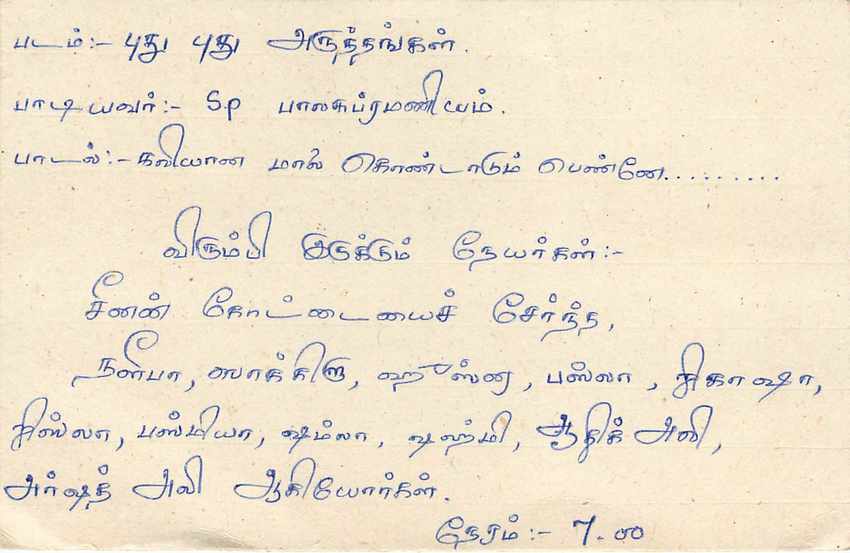 படம்:- புது புது அருத்தங்கள்.
பாடியவர்:- S.p பாலசுப்ரமணியம்.
பாடல்:- கலியான மாலை கொண்டாடும் பெண்ணே..........
விரும்பி இருக்கும் நேயர்கள்:-
சீனன் கோட்டையைச் சேர்ந்த,
நளீபா, ஸாக்கிரு, ஹுஸ்னா, பஸ்லா, ரிகாஷா,
ரிஸ்லா, பஸ்மியா, ஷம்லா, ஷஹ்மி, ஆதிக் அலி,
அர்ஷத் அலி ஆகியோர்கள்.
நேரம்:- 7.00